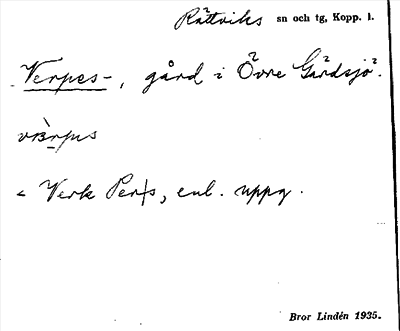 Rättviks sn och tg, Kopp. l.
Verpes-, gård i Övre Gärdsjö.
värpus
< Verk Pers, enl. uppg.
Bror Lindén 1935.